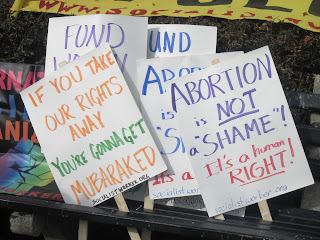 WWW.SOCIALIS
FUND
UND
IF YOU TAKE
OUR RIGHTS
AWAY
YOU'RE GONNA GET
MUBARAKED
SOCIALISTWORKER.ORG
AB
is
a
"S
It's
socialistworker
ABORTION
is NOT
a "SHAME"!
It's a human
RIGHT!
socialistworker.org